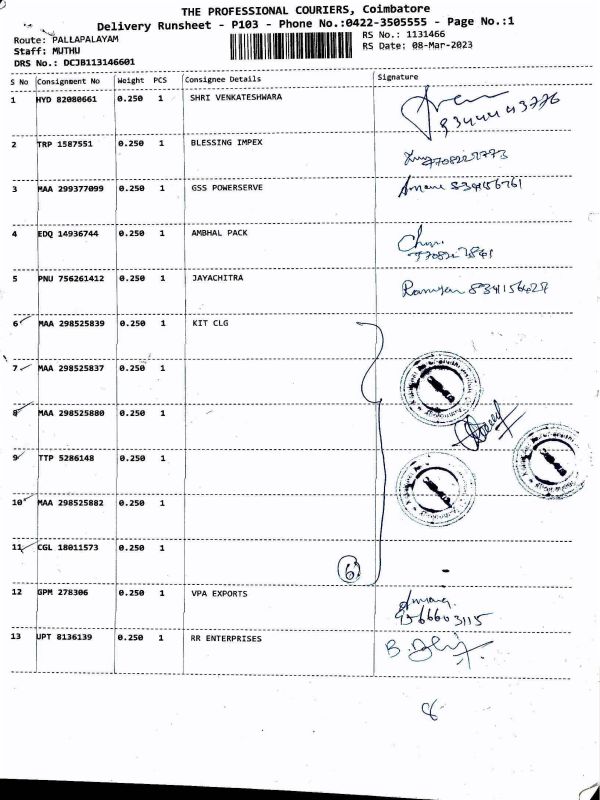 THE PROFESSIONAL COURIERS, Coimbatore
Delivery Runsheet - P103 - Phone No.:0422-3505555 - Page No.:1
Route: PALLAPALAYAM
Staff: MUTHU
DRS No.: DCJB113146601
RS No.: 1131466
RS Date: 08-Mar-2023
S No Consignment No Weight PCS Consignee Details Signature
1 HYD 82080661 0.250 1 SHRI VENKATESHWARA
2 TRP 1587551 0.250 1 BLESSING IMPEX
3 MAA 299377099 0.250 1 GSS POWERSERVE
4 EDQ 14936744 0.250 1 AMBHAL PACK
5 PNU 756261412 0.250 1 JAYACHITRA
6 MAA 298525839 0.250 1 KIT CLG
7 MAA 298525837 0.250 1
8 MAA 298525880 0.250 1
9 TTP 5286148 0.250 1
10 MAA 298525882 0.250 1
11 CGL 18011573 0.250 1
6
12 GPM 278306 0.250 1 VPA EXPORTS
13 UPT 8136139 0.250 1 RR ENTERPRISES
8